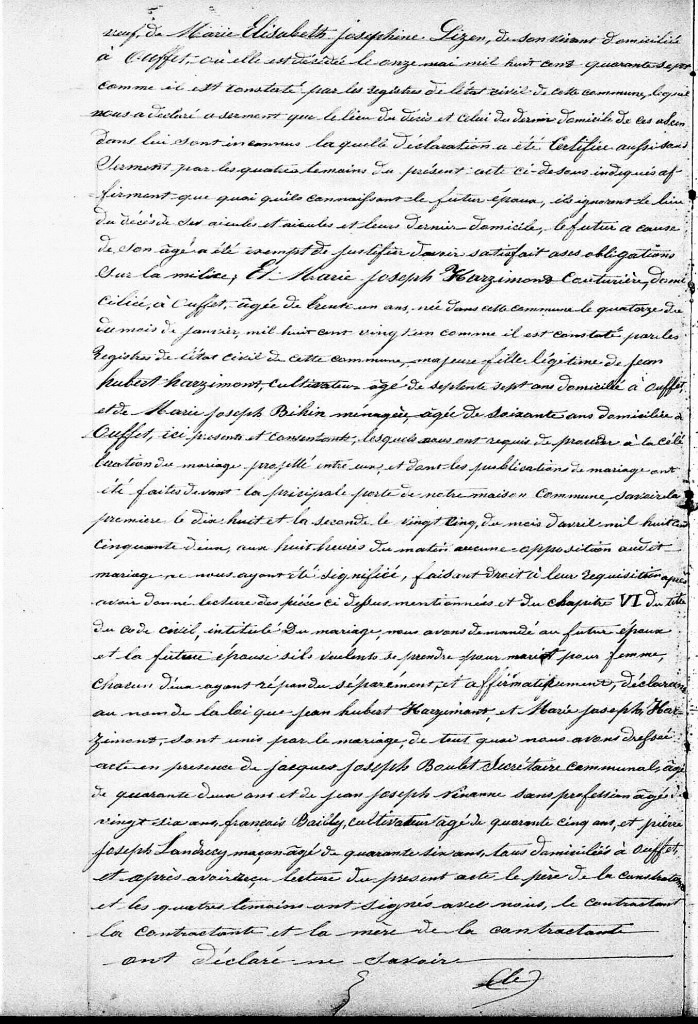 veuf, de Marie Elisabeth Josephine Lizen, de son vivant domiciliée
à Ouffet, où elle est décédée le onze mai mil huit cent quarante sept
comme il est constaté par les registres de l'état civil de cette commune, lequel
nous a déclaré a serment que le lieu du décès et celui du dernier domicile de ces ascen
dans lui sont inconnus laquelle déclaration a été certifiée aussi sous
serment par les quatres temoins du présent acte ci-desous indiqués af
firment que quoi qu'ils connaissent le futur époux, ils ignorent le lieu
du décès de ses aieuls et aieules et leurs dernier domicile, le futur a cause
de son âge a été exempt de justifier d'avoir satisfait a ses obligations
sur la milice, Et Marie Joseph Harzimont Couturière, domi
ciliée, à Ouffet, âgée de trente un ans, née dans cette commune le quatorze
du mois de janvier, mil huit cent vingt un comme il est constaté par les
registres de l'état civil de cette commune, majeure fille légitime de jean
hubert harzimont, cultivateur âgé de septente sept ans domicilié à Ouffet,
et de Marie Joseph Bihin ménagère, âgée de soixante ans domiciliée à
Ouffet, ici presents et consentants, lesquels nous ont requis de proceder à la célé
bration du mariage projetté entre eux, et dont les publications de mariage ont
été faites devant la pricipale porte de notre maison commune, savoir la
première le dix huit et la seconde le vingt cinq, du mois d'avril mil huit cent
cinquante deux, aux huit heures du matin aucune opposition audit
mariage ne nous ayant été signifiée, faisant droit à leur requisition après
avoir donné lecture des pièces ci dessus mentionnées et du chapitre VI du titre
du code civil, intitulé Du mariage, nous avons demandé au futur époux
et la future épouse s'ils veulents se prendre pour mari et pour femme,
chacun d'eux ayant répondu séparément, et affirmativement, déclarons
au nom de la loi que jean hubert Harzimont, et Marie Joseph, Har
zimont, sont unis par le mariage, de tout quoi nous avons dressé
acte en presence de jacques joseph Boulet Secrétaire communal, âgé
de quarante deux ans et de jean joseph sans profession âgé de
vingt six ans, françois Bailly, cultivateur âgé de quarante cinq ans, et pierre
joseph Landrecy maçon âgé de quarante six ans, tous domiciliés à Ouffet,
et après avoir reçu lecture du present acte le père de la contractante
et les quatres temoins ont signés avec nous, le contractant
la contractante et la mère de la contractante
ont déclaré ne savoir